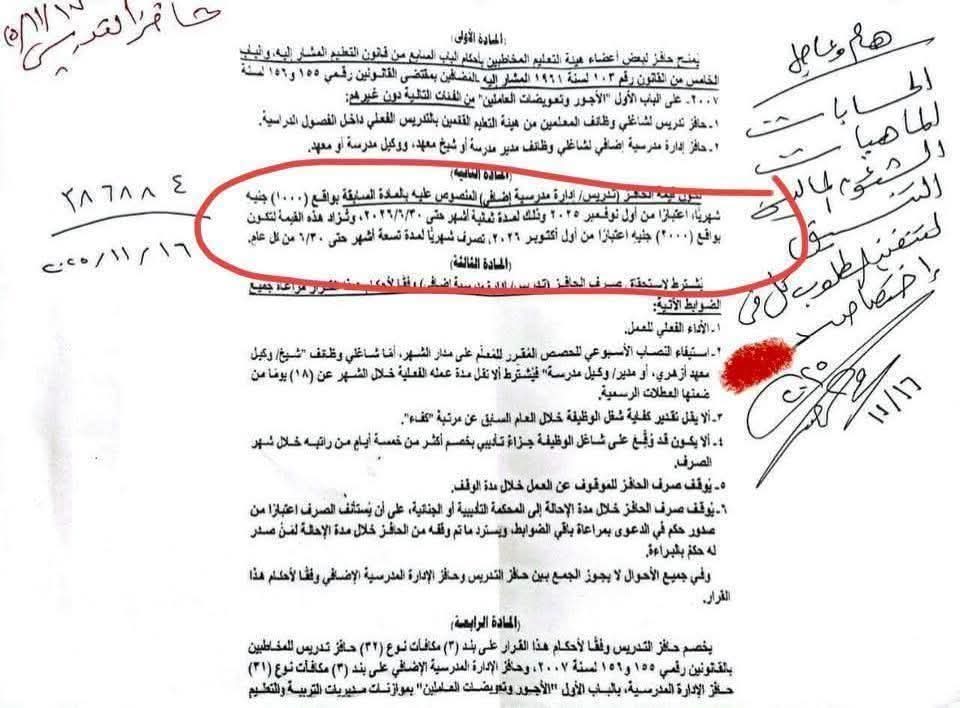 حافز التدريس
٢٠٢٥/١١/١٦
٣٨٦٨٨٤
هام وعاجل
الحسابات
الماهيات
الشئون المالية
التنسيق
للتنفيذ المطلوب كل فى
إختصاصه
٢٠٢٥
١١/١٦
(المادة الأولى)
يُمنح حافز لبعض أعضاء هيئة التعليم المخاطبين بأحكام الباب السابع من قانون التعليم المشار إليه، والباب
الخامس من القانون رقم ١٠٣ لسنة ١٩٦١ المشار إليه المضافين بمقتضى القانونين رقمي ١٥٥ و١٥٦ لسنة
٢٠٠٧- على الباب الأول "الأجور وتعويضات العاملين" من الفئات التالية دون غيرهم:
١- حافز تدريس لشاغلي وظائف المعلمين من هيئة التعليم القائمين بالتدريس الفعلي داخل الفصول الدراسية.
٢- حافز إدارة مدرسية إضافي لشاغلي وظائف مدير مدرسة أو شيخ معهد، ووكيل مدرسة أو معهد.
(المادة الثانية)
تكون قيمة الحافز (تدريس/ إدارة مدرسية إضافي) المنصوص عليه بالمادة السابقة بواقع (١٠٠٠) جنيه
شهريًا، اعتبارًا من أول نوفمبر ٢٠٢٥ وذلك لمدة ثمانية أشهر حتى ٢٠٢٦/٦/٣٠، وتُزاد هذه القيمة لتكون
بواقع (٢٠٠٠) جنيه اعتبارًا من أول أكتوبر ٢٠٢٦، تصرف شهريًا لمدة تسعة أشهر حتى ٦/٣٠ من كل عام.
(المادة الثالثة)
يُشترط لاستحقاق صرف الحافز (تدريس/ إدارة مدرسية إضافي) وفقًا لأحكام هذا القرار مراعاة جميع
الضوابط الآتية:
١- الأداء الفعلي للعمل.
٢- استيفاء النصاب الأسبوعي للحصص المُقرر للمُعلم على مدار الشهر، أما شاغلي وظائف "شيخ/ وكيل
معهد أزهري، أو مدير/ وكيل مدرسة" فيُشترط ألا تقل مدة عمله الفعلية خلال الشهر عن (١٨) يومًا من
ضمنها العطلات الرسمية.
٣- ألا يقل تقدير كفاية شغل الوظيفة خلال العام السابق عن مرتبة "كفء".
٤- ألا يكون قد وُقّع على شاغل الوظيفة جزاءً تأديبي بخصم أكثر من خمسة أيام من راتبه خلال شهر
الصرف.
٥- يُوقف صرف الحافز للموقوف عن العمل خلال مدة الوقف.
٦- يُوقف صرف الحافز خلال مدة الإحالة إلى المحكمة التأديبية أو الجنائية، على أن يُستأنف الصرف اعتبارًا من
صدور حكم في الدعوى بمراعاة باقي الضوابط، ويسترد ما تم وقفه من الحافز خلال مدة الإحالة لمَنْ صدر
له حكم بالبراءة.
وفي جميع الأحوال لا يجوز الجمع بين حافز التدريس وحافز الإدارة المدرسية الإضافي وفقًا لأحكام هذا
القرار.
(المادة الرابعة)
يخصم حافز التدريس وفقًا لأحكام هذا القرار على بند (٣) مكافآت نوع (٣٢) حافز تدريس للمخاطبين
بالقانونين رقمي ١٥٥ و١٥٦ لسنة ٢٠٠٧، وحافز الإدارة المدرسية الإضافي على بند (٣) مكافآت نوع (٣١)
حافز الإدارة المدرسية، بالباب الأول "الأجور وتعويضات العاملين" بموازنات مديريات التربية والتعليم